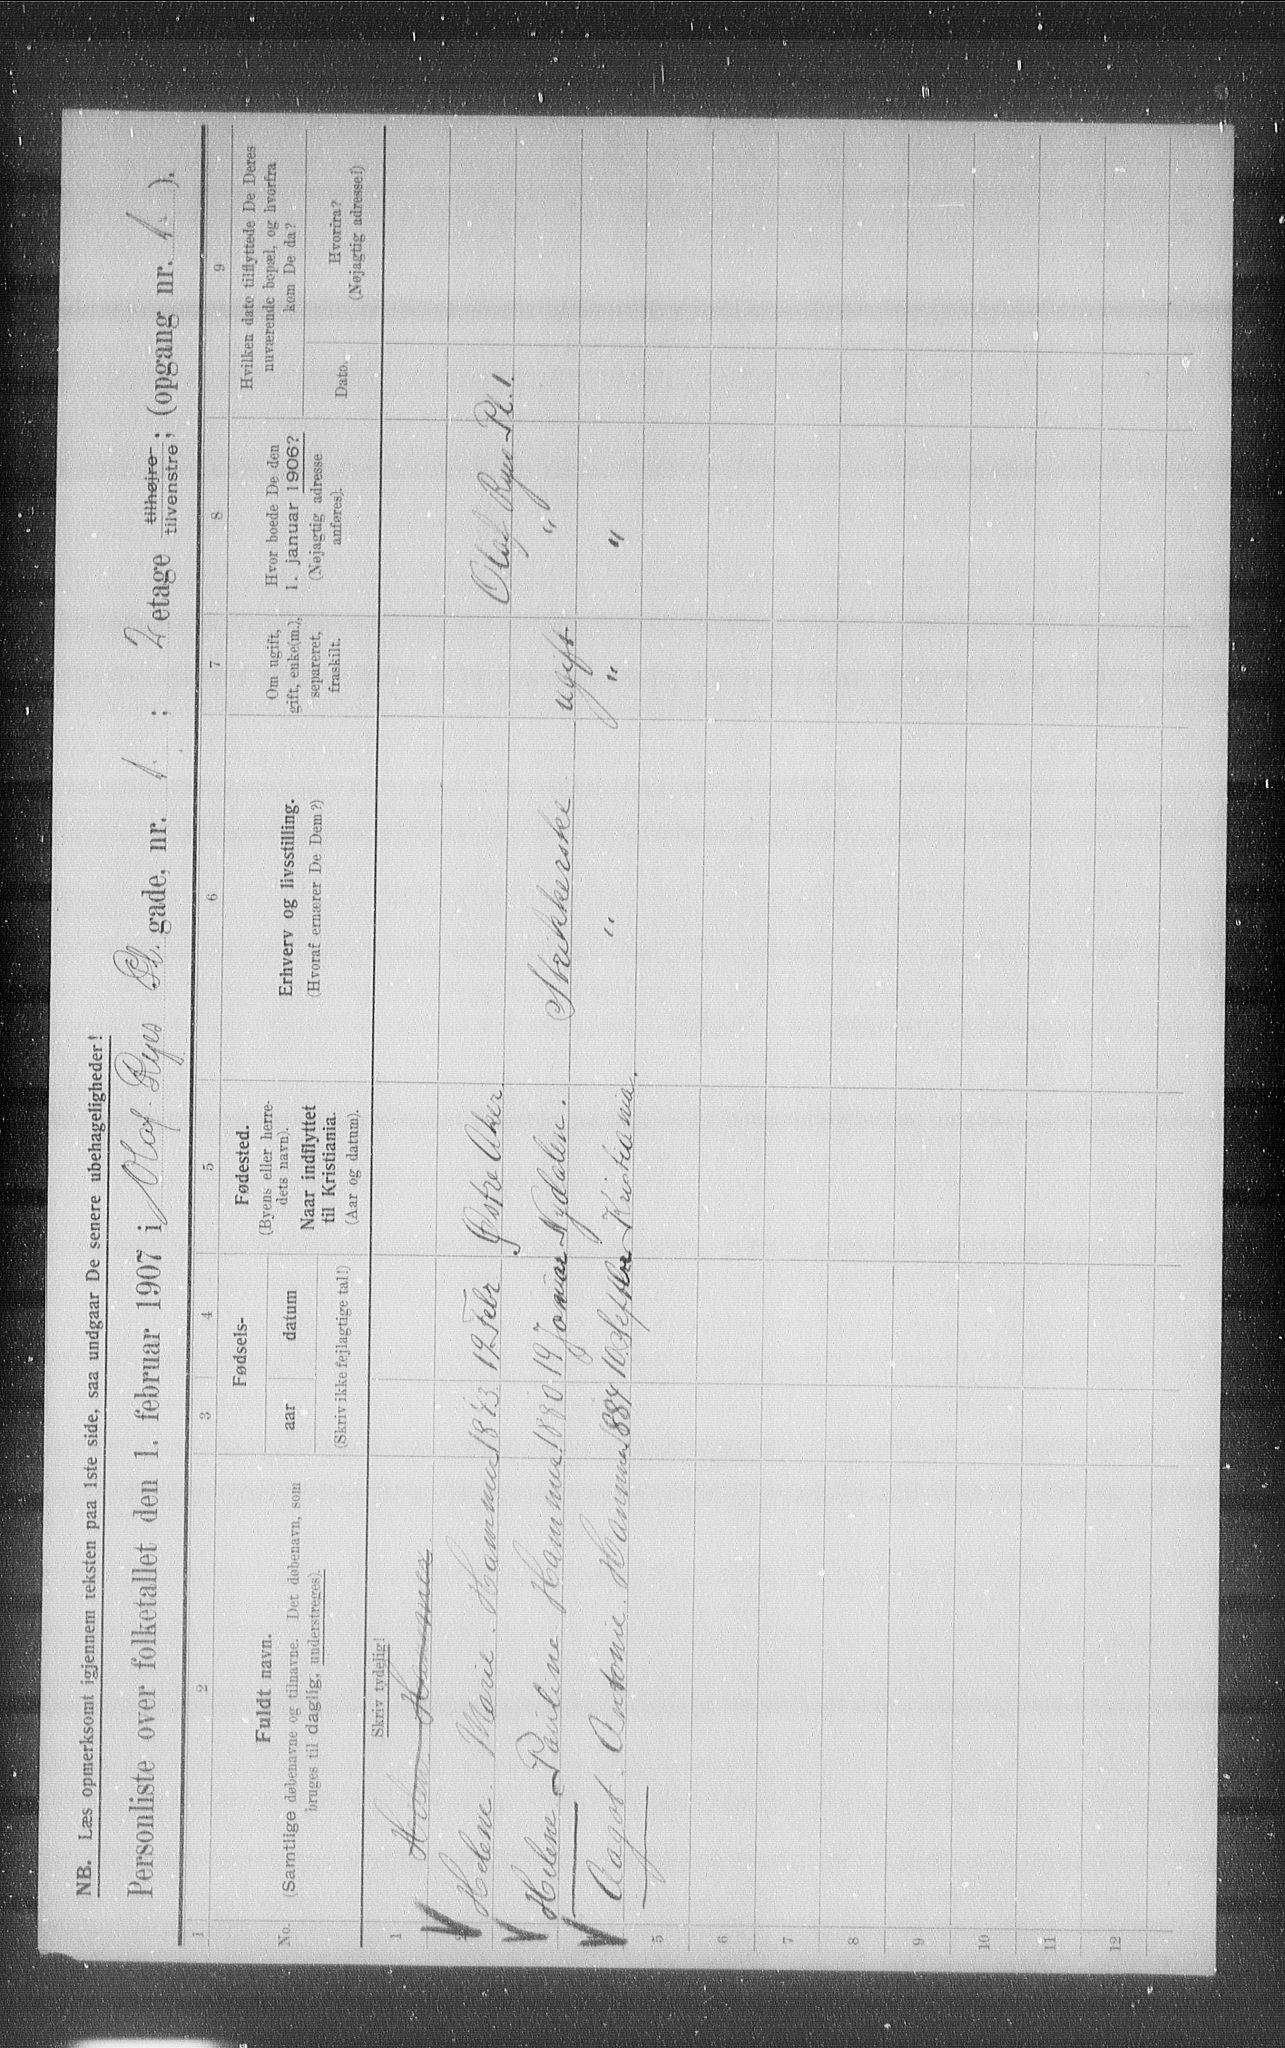 NB. Læs opmerksomt igjennem teksten paa 1ste side, saa undgaar De senere ubehageligheder!
Personliste over folketallet den 1. februar 1907 i Olaf Ryes Pl. gade, nr. 1. ; 2 etage tilhøjre tilvenstre ; (opgang nr. 1. ).
1 2 3 4 5 6 7 8 9
No.
Fuldt navn.
(Samtlige døbenavne og tilnavne. Det døbenavn, som
bruges til daglig, understreges).
Fødsels-
aar datum
(Skriv ikke fejlagtige tal!)
Fødested.
(Byens eller herre-
dets navn).
Naar indflyttet
til Kristiania.
(Aar og datum).
Erhverv og livsstilling.
(Hvoraf ernærer De Dem?)
Om ugift,
gift, enke(m.),
separeret,
fraskilt.
Hvor boede De den
1. januar 1906?
(Nøjagtig adresse
anføres).
Hvilken dato tilflyttede De Deres
nuværende bopæl, og hvorfra
kom De da?
Dato.
Hvorfra?
(Nøjagtig adresse!)
Skriv tydelig!
1
Helene Marie Hammer 1843 12 Febr Østre Aker. Olaf Ryes Pl. 1.
Helene Pauline Hammer 1880 19 Januar Nydalen. Strikkerske ugift "
Aagot Antonie Hammer 1884 10 Septbr Kristiania. " " "
5
6
7
8
9
10
11
12